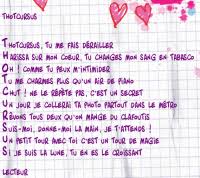 THOTCURSUS
THOTCURSUS, TU ME FAIS DÉRAILLER
HARISSA SUR MON COEUR, TU CHANGES MON SANG EN TABASCO
OH ! COMME TU PEUX M'INTIMIDER
TU ME CHARMES PLUS QU'UN AIR DE PIANO
CHUT ! NE LE RÉPÈTE PAS, C'EST UN SECRET
UN JOUR JE COLLERAI TA PHOTO PARTOUT DANS LE MÉTRO
RÊVONS TOUS DEUX QU'ON MANGE DU CLAFOUTIS
SUIS-MOI, DONNE-MOI LA MAIN, JE T'ATTENDS !
UN PETIT TOUR AVEC TOI C'EST UN TOUR DE MAGIE
SI JE SUIS LA LUNE, TU EN ES LE CROISSANT
LECTEUR